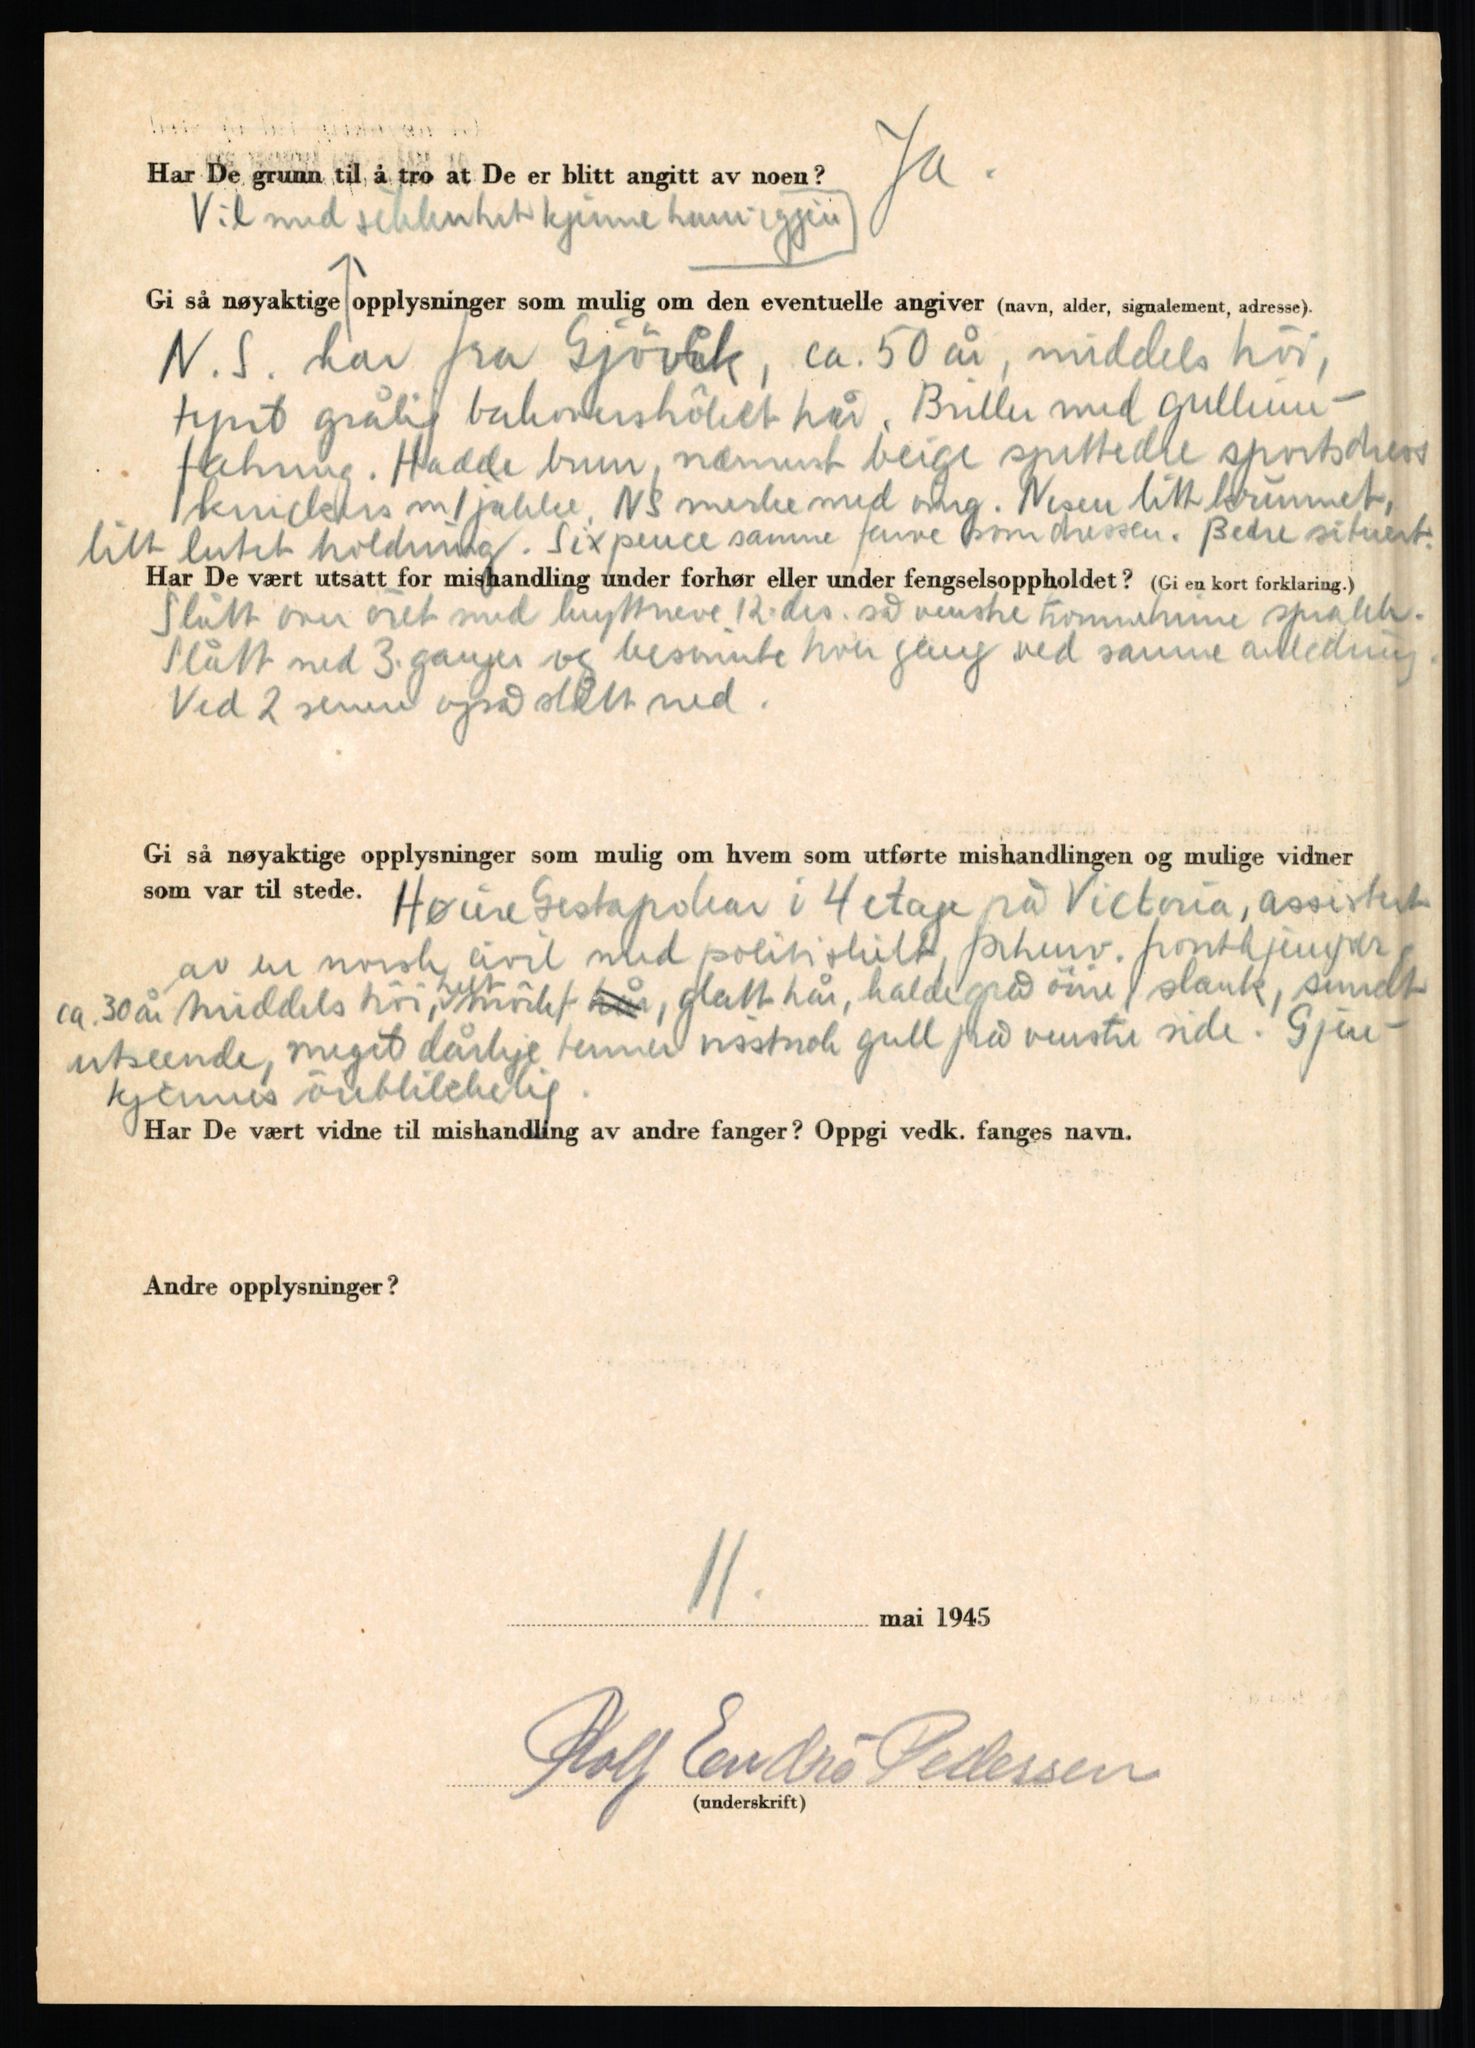 Har De grunn til å tro at De er blitt angitt av noen? Ja.
Vil med sikkerhet kjenne ham igjen
Gi så nøyaktige opplysninger som mulig om den eventuelle angiver (navn, alder, signalement, adresse).
N.S. kar fra Gjövik, ca. 50 år, middels höi,
tynt grålig bakoverströket hår. Briller med gullinn-
fatning. Hadde brun, nærmest beige spettedte sportsdress
knickers m/jakke. NS merke med ring. Nesen litt krummet,
litt lutet holdning. Sixpence samme farve som dressen. Bedre situert.
Har De vært utsatt for mishandling under forhør eller under fengselsoppholdet? (Gi en kort forklaring.)
Slått over öret med knyttneve 12. des. så venstre trommehinne sprakk.
Slått ned 3. ganger og besvimte hver gang ved samme anledning.
Ved 2 senere også slått ned.
Gi så nøyaktige opplysninger som mulig om hvem som utførte mishandlingen og mulige vidner
som var til stede. Høiere Gestapokar i 4 etage på Victoria, assistert
av en norsk civil med politiskilt, forhenv. frontkjemper,
ca. 30 år middels höi, helt mörkt hår, glatt hår, kalde grå öine, slank, sundt
utseende, meget dårlige tenner visstnok gull på venstre side. Gjen-
kjennes öieblikkelig.
Har De vært vidne til mishandling av andre fanger? Oppgi vedk. fanges navn.
Andre opplysninger?
11. mai 1945
Rolf Endrö Pedersen
(underskrift)